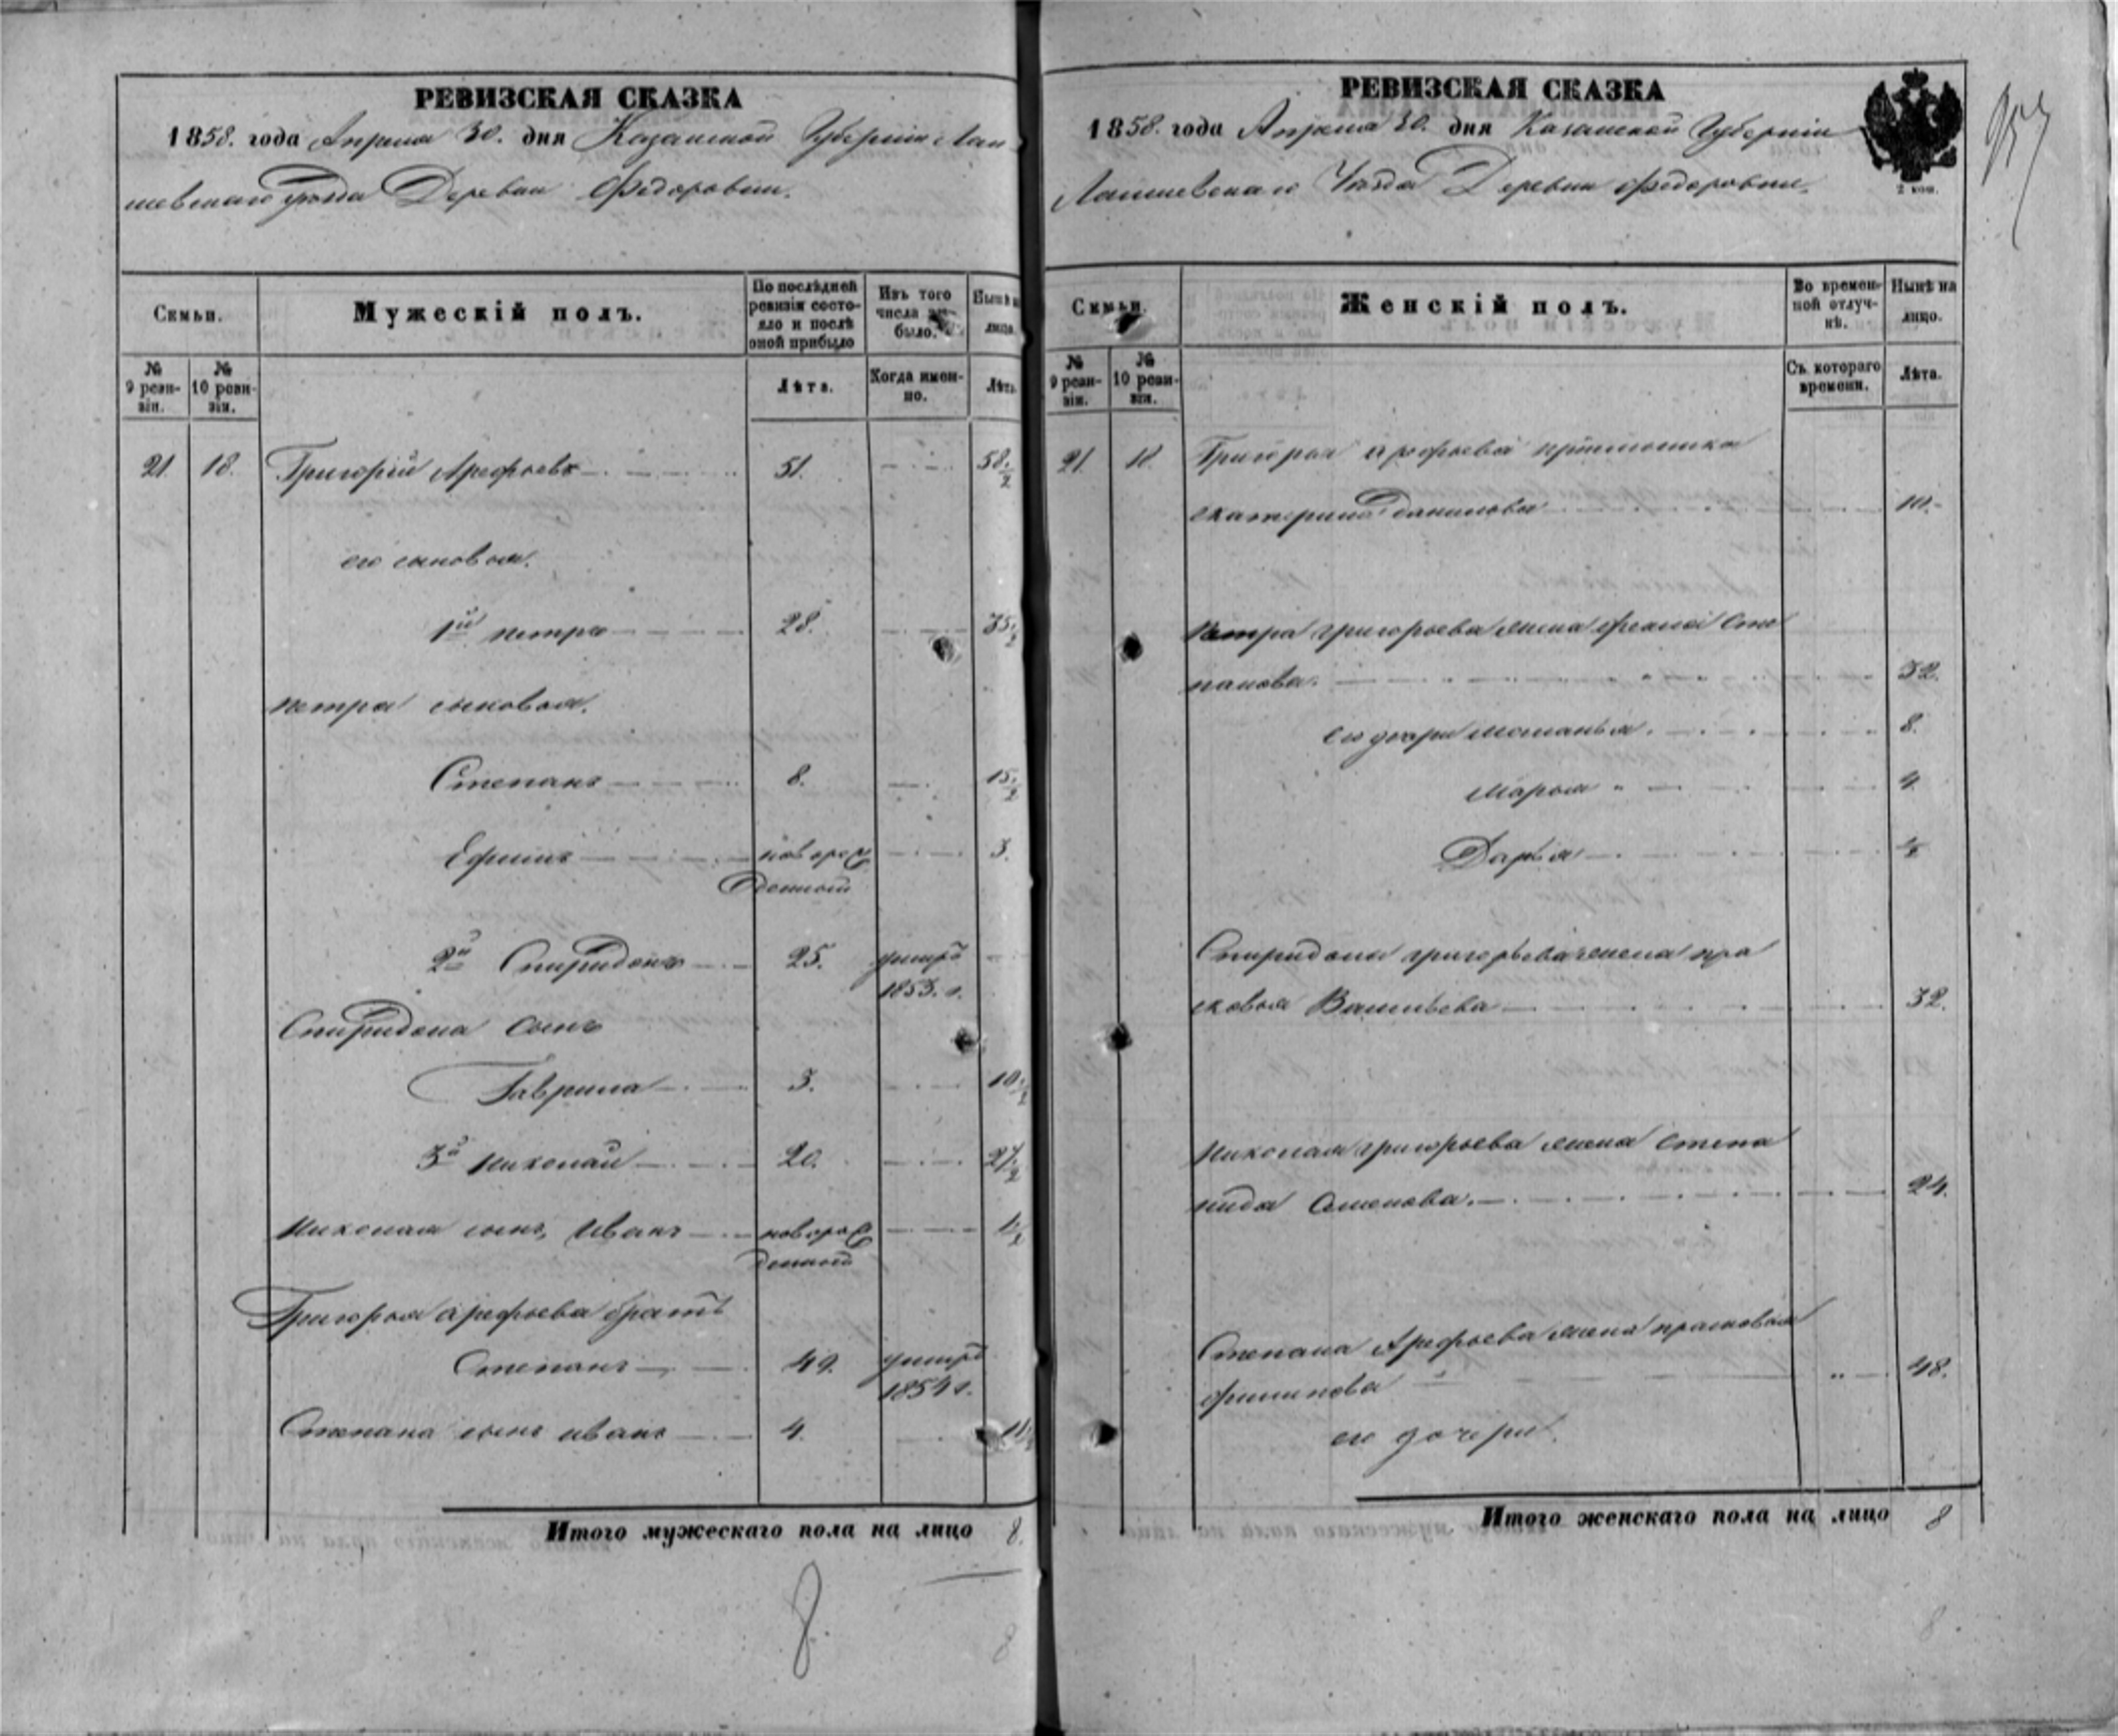 РЕВИЗСКАЯ СКАЗКА
1858. года Апреля 30. дня Казанской Губернии Лаи
шевскаго уезда Деревни Федоровки.
Семьи.
Мужескій полъ.
По последней ревизіи состояло и после оной прибыло
Изъ того числа выбыло.
Ныне на лицо.
№ 9 ревизіи.
№ 10 ревизіи.
Лета.
Когда именно.
Лета.
21. 18. Григорій Арефьевъ 51. 58 1/2
его сыновья.
1й петръ 28. 35 1/2
петра сыновья.
Степанъ 8. 15 1/2
Ефимъ новорож 3.
денный
2й Спиридонъ 25. умеръ
1853. г.
Спиридона сынъ
Гаврила 3. 10 1/2
3й николай 20. 27 1/2
николая сынъ, Иванъ новорож 1/2
денный
Григорья арефьева братъ
Степанъ 49. умеръ
1854 г.
Степана сынъ иванъ 4. 11 1/2
Итого мужескаго пола на лицо 8.
8.
8
РЕВИЗСКАЯ СКАЗКА
1858. года Апреля 30. дня Казанской Губерніи
Лаишевскаго Уезда Деревни Федоровки.
2 коп.
957
Семьи.
Женскій полъ.
Во временной отлучке.
Ныне на лицо.
№ 9 ревизіи.
№ 10 ревизіи.
Съ котораго времени.
Лета.
21. 18. Григорья арефьева
екатерина данилова 10.
Петра григорьева жена Сте
панова. 32.
его дочери 8.
марья 4
Дарья
Спиридона григорьева жена пра
сковья Васильева 32.
николая григорьева жена степа
нида Семенова. 24.
Степана Арефьева жена прасковья
филипова 48.
его дочери.
Итого женскаго пола на лицо 8
8